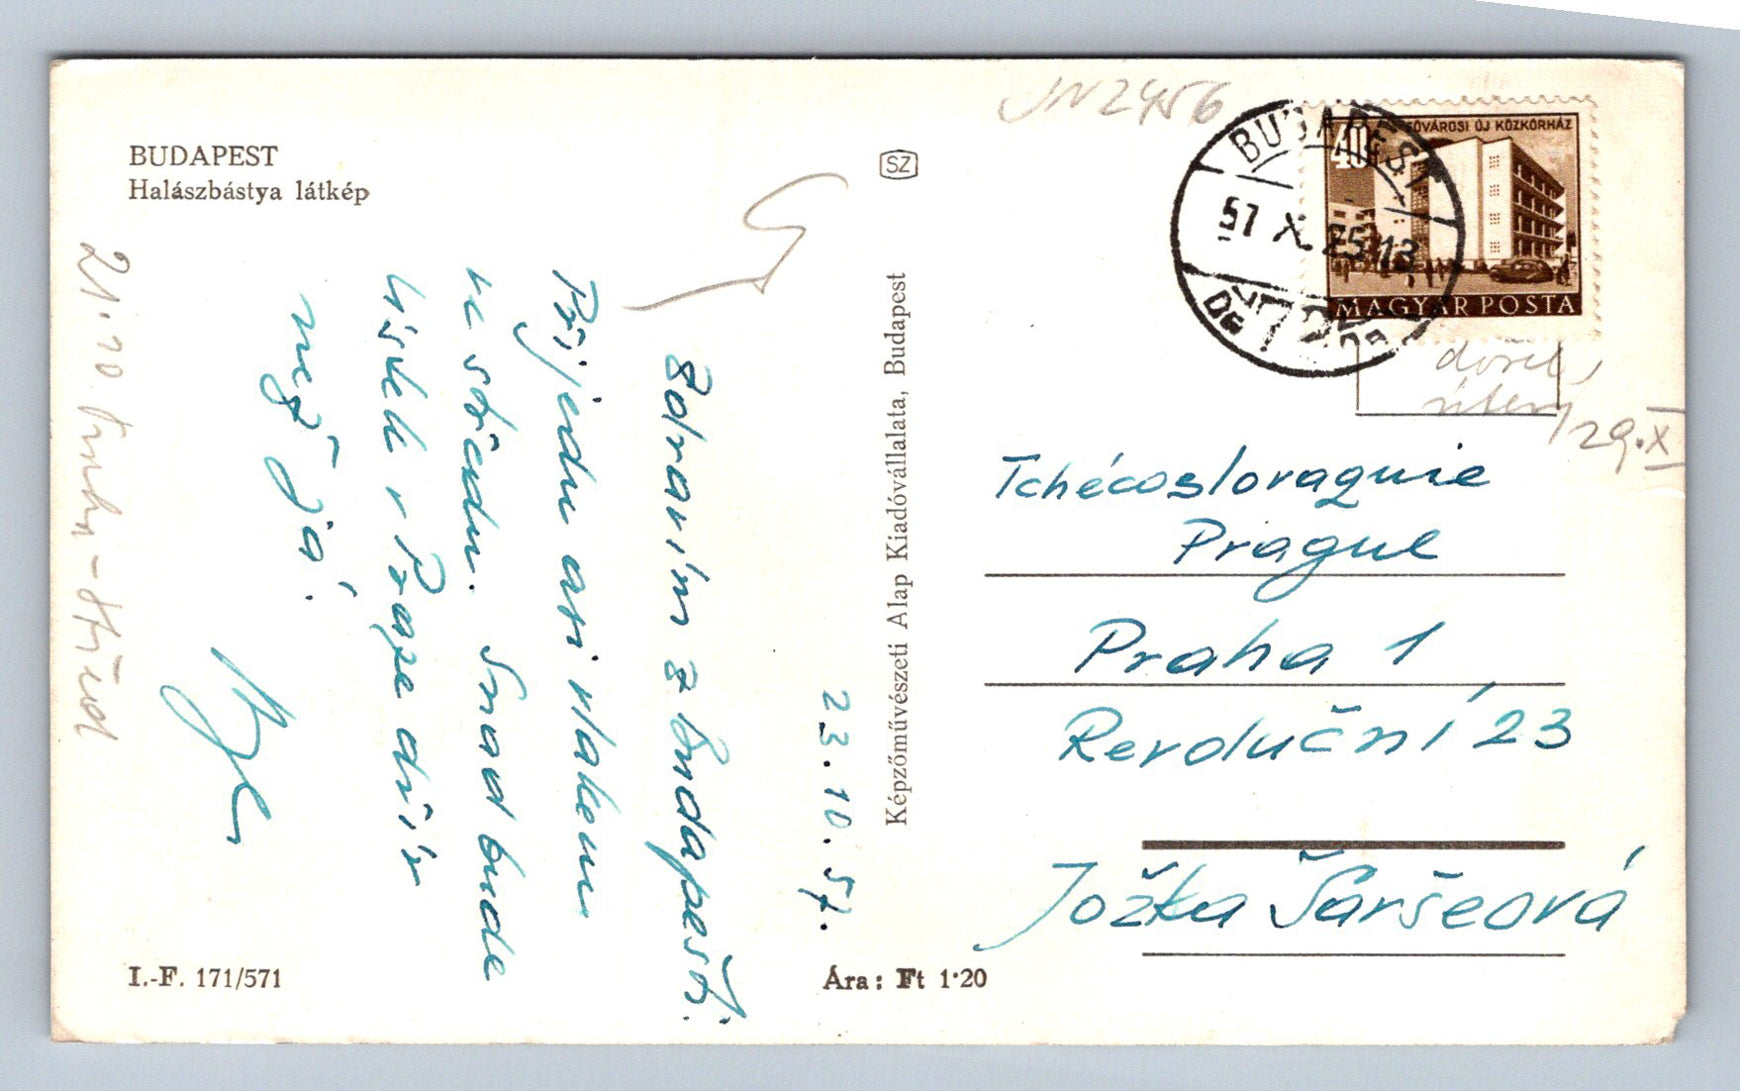 BUDAPEST
Halászbástya látkép
SZ
23.10.57.
Zdravím z Budapešti.
Přijedu asi vlakem
ve středu. Snad bude
lístek v Praze dřív
než já!
21.10 - střed
I.-F. 171/571
Ára: Ft 1·20
Képzőművészeti Alap Kiadóvállalata, Budapest
JN2456
BUDAPEST
57 X. 25 13
40
FŐVÁROSI ÚJ KÖZKÓRHÁZ
MAGYAR POSTA
došel
úterý 29.X
Tchécoslovaquie
Prague
Praha 1
Revoluční 23
Jožka Šaršeová